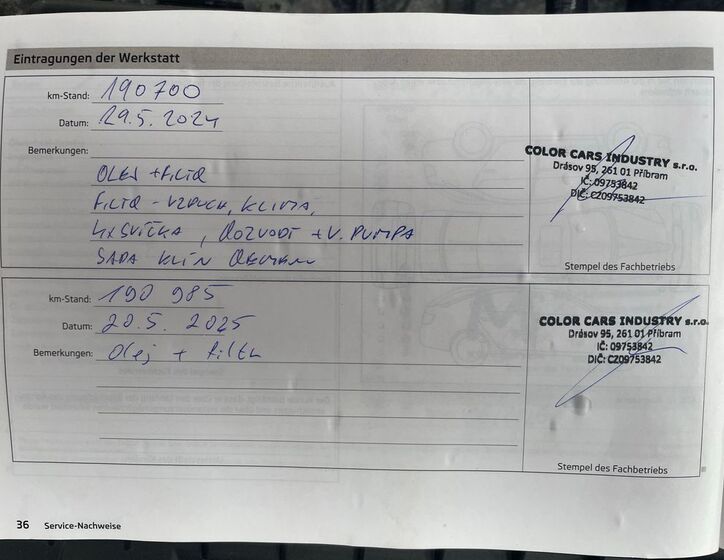 Eintragungen der Werkstatt
km-Stand: 190700
Datum: 29.5. 2024
Bemerkungen:
OLEJ + FILTR
FILTR - VZDUCH, KLIMA,
4x SVÍČKA, ROZVODY + V. PUMPA
SADA KLÍN ŘEMENU
COLOR CARS INDUSTRY s.r.o.
Drásov 95, 261 01 Příbram
IČ: 09753842
DIČ: CZ09753842
Stempel des Fachbetriebs
km-Stand: 190 985
Datum: 20.5. 2025
Bemerkungen: Olej + filtr
COLOR CARS INDUSTRY s.r.o.
Drásov 95, 261 01 Příbram
IČ: 09753842
DIČ: CZ09753842
Stempel des Fachbetriebs
36 Service-Nachweise